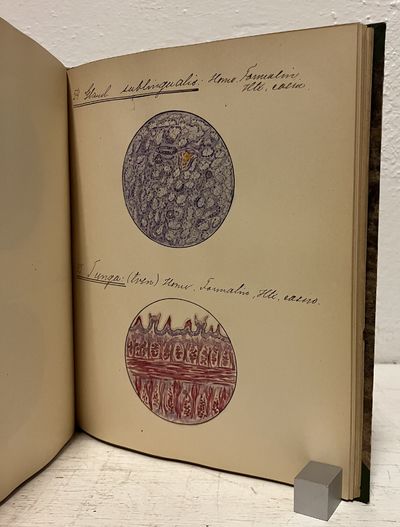 Gland sublingualis. Homo. Formalin
Htx, eosin.
Tunga. (tvär) Homo. Formalin, Htx, eosin.